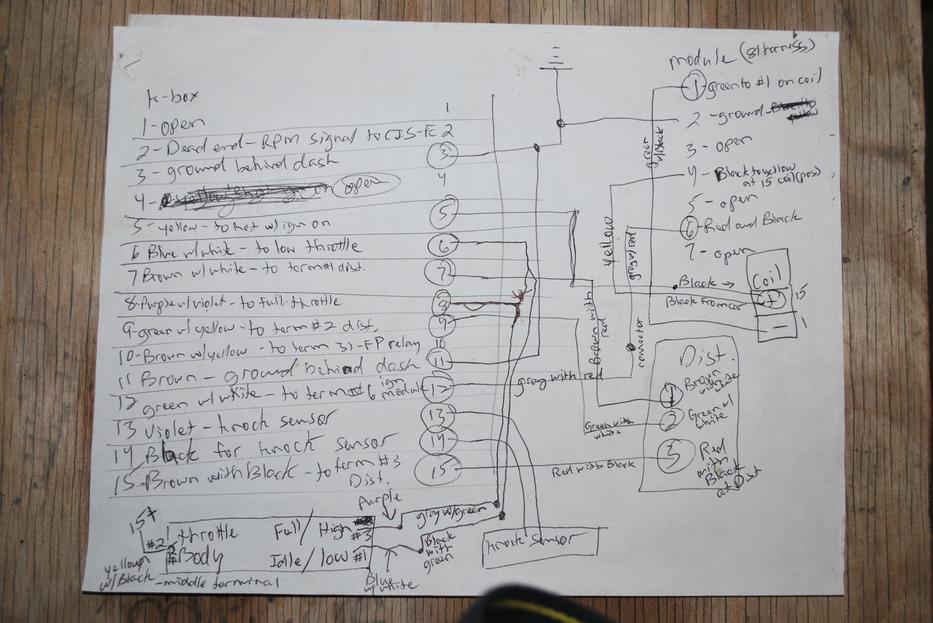 k-box
1-open
2-Dead end-RPM signal to CIS-E
3-ground behind dash
4- open
5-yellow-to hot w/ign on
6 Blue w/white-to low throttle
7 Brown w/white-to term #1 dist.
8-Purple w/violet-to full throttle
9-green w/yellow-to term #2 dist.
10-Brown w/yellow-to term 31-FP relay
11 Brown-ground behind dash
12 green w/white-to term #6 ign module
13 Violet-knock sensor
14 Black for knock sensor
15-Brown with Black-to term #3
Dist.
1
2
3
4
5
6
7
8
9
10
11
12
13
14
15
module (8 harness)
1 green to #1 on coil
2 ground
3-open
4-Black to yellow
at 15 coil (pos)
5-open
6-Red and Black
7-open
green w/black
yellow
gray w/red
Brown with red
connector
Black →
Black from car
Coil
+
-
15
1
gray with red
Green with
white
Red with Black
Dist.
1 Brown with white
2 Green w/
white
3 Red
with
Black
at Dist
15+
#2
throttle
Body
Full/High
#3
Idle/low #1
yellow
w/Black-middle terminal
Purple
gray w/green
Black
with
green
Blue
w/white
knock Sensor